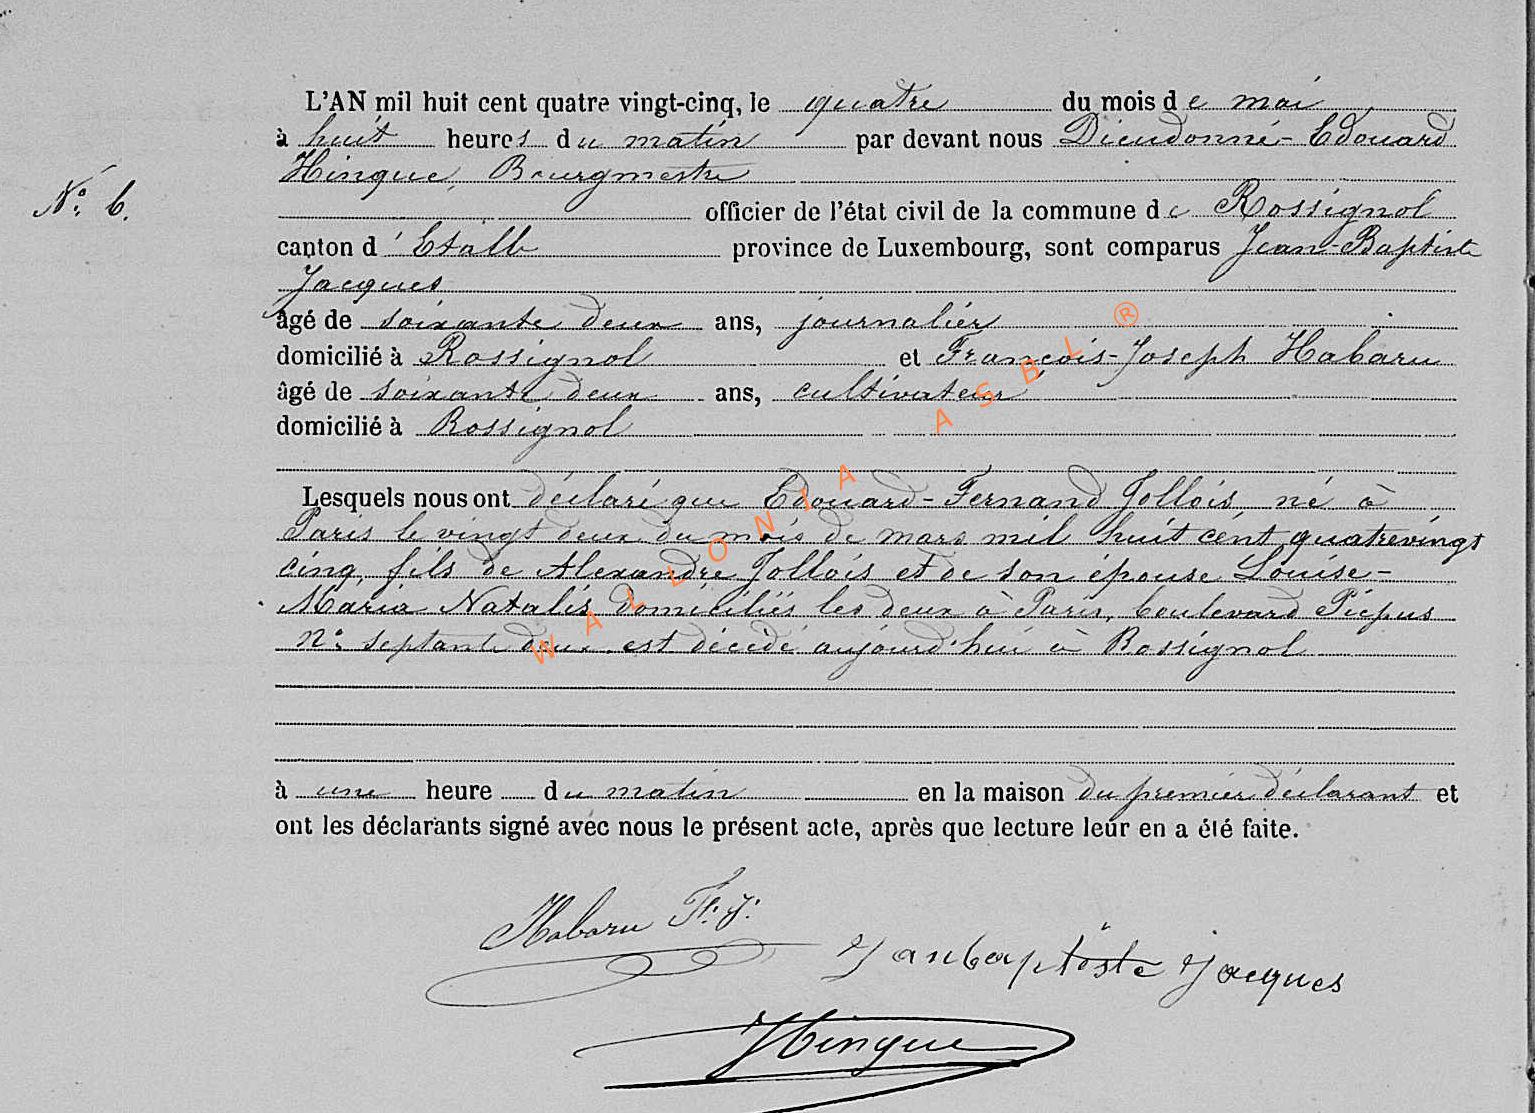 L'AN mil huit cent quatre vingt-cinq, le quatre du mois de mai
à huit heures du matin par devant nous Dieudonné-Edouard
Hinque, Bourgmestre
N° 6.
officier de l'état civil de la commune de Rossignol
canton d'Etalle province de Luxembourg, sont comparus Jean-Baptiste
Jacques
âgé de soixante deux ans, journalier
domicilié à Rossignol et François-Joseph Habaru
âgé de soixante deux ans, cultivateur
domicilié à Rossignol
Lesquels nous ont déclaré que Edouard-Fernand Jollois, né à
Paris le vingt deux du mois de mars mil huit cent quatrevingt
cinq, fils de Alexandre Jollois et de son épouse Louise-
Maria Natalis domiciliés les deux à Paris, boulevard Picpus
n° septante deux est décédé aujourd'hui à Rossignol
à une heure du matin en la maison du premier déclarant et
ont les déclarants signé avec nous le présent acte, après que lecture leur en a été faite.
Habaru F. J.
Janbaptiste Jacques
Hinque
WALLONIA ASBL ®